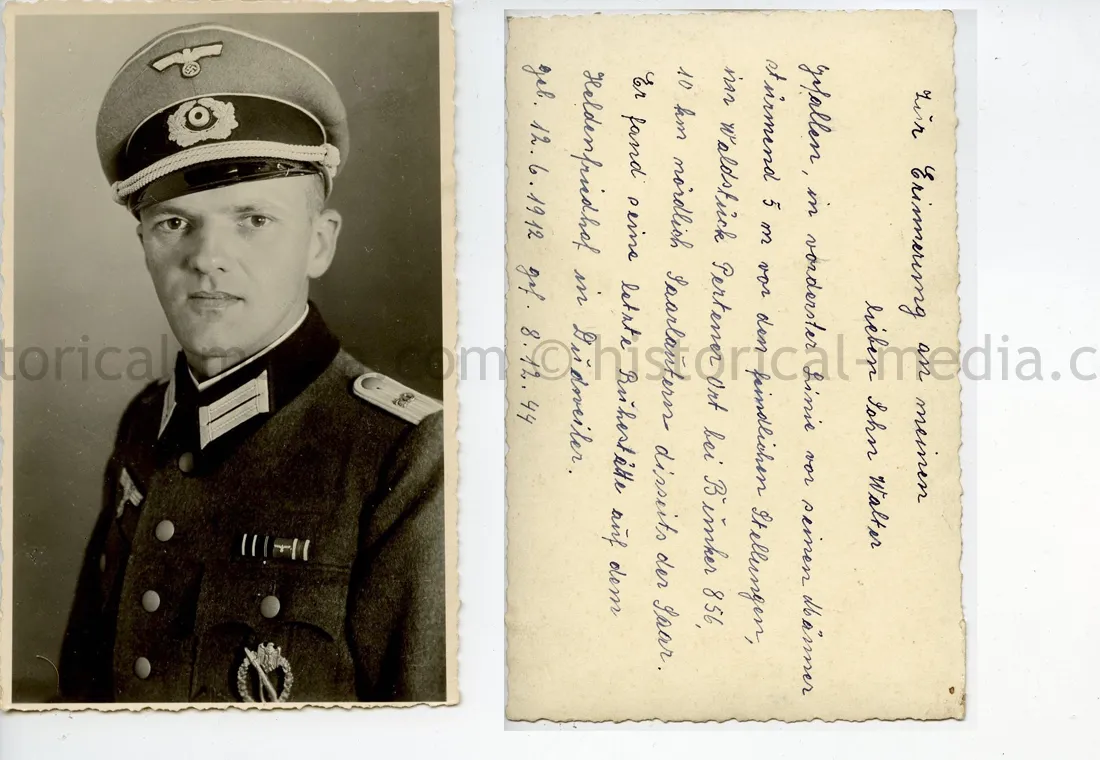 Zur Erinnerung an meinen
lieben Sohn Walter
gefallen, in vorderster Linie vor seinen Männer
stürmend 5 m vor den feindlichen Stellungen,
im Waldstück Pertener Ort bei Bunker 856,
10 km nördlich Saarlautern disseits der Saar.
Er fand seine letzte Ruhestätte auf dem
Heldenfriedhof in Dudweiler.
geb. 12.6.1912 gef. 8.12.44
torical-media.com © historical-media.c